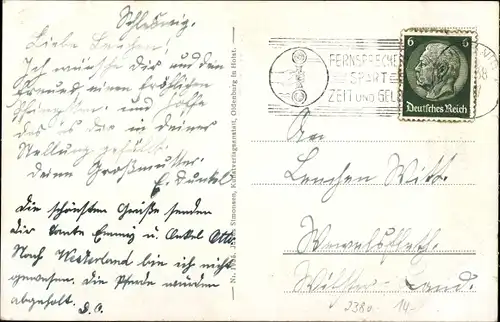 Schleswig.
Liebe Lenchen!
Ich wünsche dir und den
Freund einen fröhlichen
Pfingsten. und hoffe
das es dir in deiner
Stellung gefällt.
deine Großmutter.
E. Dunkel
Die schönsten Grüße senden
Dir Tante Emmy u. Onkel Otto.
Nach Westerland bin ich nicht
gewesen. Die Pferde wurden
abgeholt. D. O.
Simonsen, Kunstverlagsanstalt, Oldenburg in Holst.
FERNSPRECHE
SPART
ZEIT UND GEL
6 6
Deutsches Reich
An
Lenchen Witt.
Wewelsfleth.
Wilster-Land.
2380 14.-